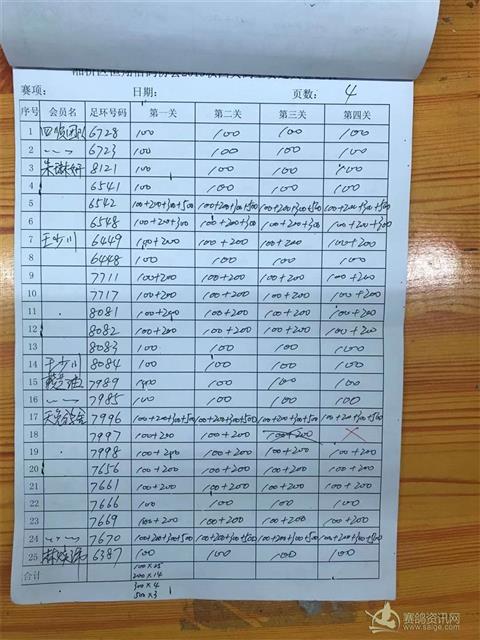 赛项： 日期： 页数： 4
序号 会员名 足环号码 第一关 第二关 第三关 第四关
1 6728 100 100 100 100
2 6723 100 100 100 100
3 8121 100 100 100 100
4 6541 100 100 100 100
5 6542 100+200+300+500 100+200+300+500 100+200+300+500 100+200+300+500
6 6548 100+200+300 100+200+300 100+200+300 100+200+300
7 王少川 6449 100+200 100+200 100+200 100+200
8 6448 100 100 100 100
9 7711 100+200 100+200 100+200 100+200
10 7717 100+200 100+200 100+200 100+200
11 8081 100+200 100+200 100+200 100+200
12 8082 100+200 100+200 100+200 100+200
13 8083 100 100 100 100
14 王少川 8084 100 100 100 100
15 7989 100 100 100 100
16 7985 100 100 100 100
17 7996 100+200+300+500 100+200+300+500 100+200+300+500 100+200+300+500
18 7997 100+200 100+200 100+200 X
19 7998 100+200 100+200 100+200 100+200
20 7656 100+200 100+200 100+200 100+200
21 7661 100+200 100+200 100+200 100+200
22 7666 100 100 100 100
23 7669 100+200 100+200 100+200 100+200
24 7670 100+200+300+500 100+200+300+500 100+200+300+500 100+200+300+500
25 6387 100 100 100 100
合计 100×25
200×14
300×4
500×3
赛鸽资讯网